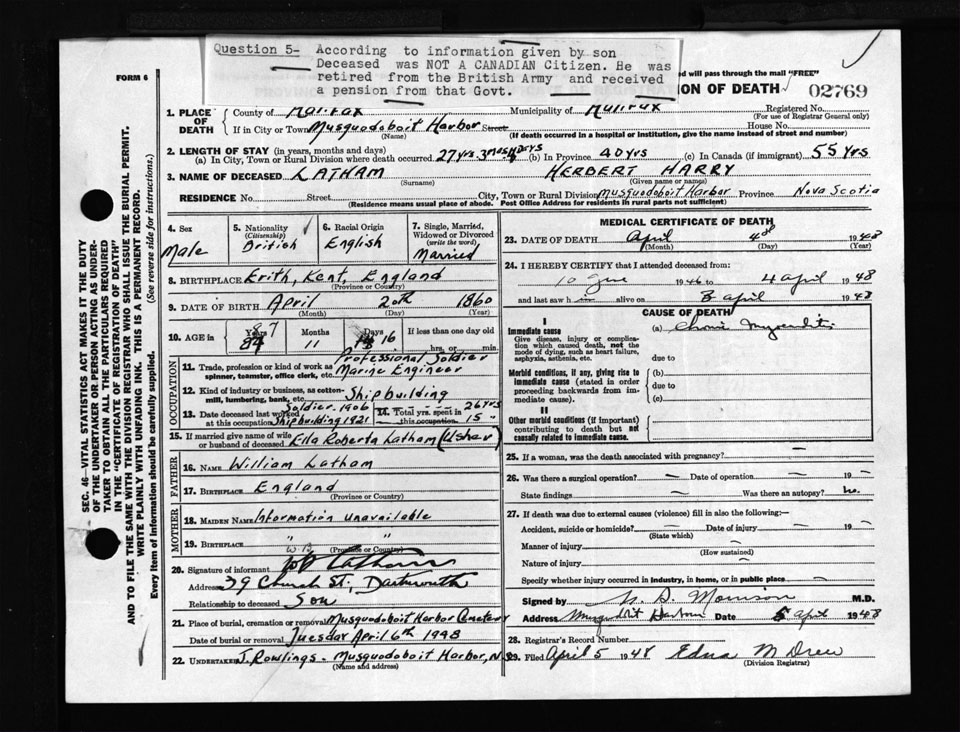 Question 5- According to information given by son
Deceased was NOT A CANADIAN Citizen. He was
retired from the British Army and received
a pension from that Govt.
FORM 6
ed will pass through the mail "FREE"
ION OF DEATH
02769
1. PLACE OF DEATH
County of Halifax Municipality of Halifax Registered No.
(For use of Registrar General only)
If in City or Town Musquodoboit Harbor Street House No.
(Name) (If death occurred in a hospital or institution, give the name instead of street and number)
2. LENGTH OF STAY (in years, months and days)
(a) In City, Town or Rural Division where death occurred 27 yrs. 3 mos. DAYS (b) In Province 40 yrs (c) In Canada (if immigrant) 55 yrs
3. NAME OF DECEASED LATHAM HERBERT HARRY
(Surname) (Given name or names)
RESIDENCE No. Street City, Town or Rural Division Musquodoboit Harbor Province Nova Scotia
(Residence means usual place of abode. Post Office Address for residents in rural parts not sufficient)
4. Sex
Male
5. Nationality
(Citizenship)
British
6. Racial Origin
English
7. Single, Married, Widowed or Divorced
(write the word)
Married
8. BIRTHPLACE Erith, Kent, England
(Province or Country)
9. DATE OF BIRTH April 20th 1860
(Month) (Day) (Year)
10. AGE in Years 87 Months 11 Days 16 If less than one day old
hrs. or min.
OCCUPATION
11. Trade, profession or kind of work as spinner, teamster, office clerk, etc. Professional Soldier
Marine Engineer
12. Kind of industry or business, as cotton-mill, lumbering, bank, etc. Shipbuilding
13. Date deceased last worked at this occupation Soldier 1906
Shipbuilding 1921
14. Total yrs. spent in this occupation 26 yrs
15 "
15. If married give name of wife or husband of deceased Ella Roberta Latham (Usher)
FATHER
16. NAME William Latham
17. BIRTHPLACE England
(Province or Country)
MOTHER
18. MAIDEN NAME Information unavailable
19. BIRTHPLACE " "
(Province or Country)
20. Signature of informant Latham
Address 39 Church St., Dartmouth
Relationship to deceased Son
21. Place of burial, cremation or removal Musquodoboit Harbor Cemetery
Date of burial or removal Tuesday April 6th 1948
22. Undertaker J. Rowlings - Musquodoboit Harbor, N.S.
(Name and address)
MEDICAL CERTIFICATE OF DEATH
23. DATE OF DEATH April 4th 1948
(Month) (Day) (Year)
24. I HEREBY CERTIFY that I attended deceased from:
10 1946 to 4 April 1948
and last saw h im alive on 3 April 1948
CAUSE OF DEATH
I
Immediate cause
Give disease, injury or complication which caused death, not the mode of dying, such as heart failure, asphyxia, asthenia, etc.
(a) Chronic Myocarditis
due to
Morbid conditions, if any, giving rise to immediate cause (stated in order proceeding backwards from immediate cause).
(b)
due to
(c)
II
Other morbid conditions (if important) contributing to death but not causally related to immediate cause.
25. If a woman, was the death associated with pregnancy? —
26. Was there a surgical operation? — Date of operation — 19 —
State findings — Was there an autopsy? no.
27. If death was due to external causes (violence) fill in also the following:—
Accident, suicide or homicide? — Date of injury — 19 —
(State which)
Manner of injury —
(How sustained)
Nature of injury —
Specify whether injury occurred in industry, in home, or in public place —
Signed by Morrison M.D.
Address Musquodoboit Harbour Date 5 April 1948
28. Registrar's Record Number
29. Filed April 5 1948 Edna M Drew
(Division Registrar)
SEC. 46—VITAL STATISTICS ACT MAKES IT THE DUTY
OF THE UNDERTAKER OR PERSON ACTING AS UNDER-
TAKER TO OBTAIN ALL THE PARTICULARS REQUIRED
IN THE "CERTIFICATE OF REGISTRATION OF DEATH"
AND TO FILE THE SAME WITH THE DIVISION REGISTRAR WHO SHALL ISSUE THE BURIAL PERMIT.
WRITE PLAINLY WITH UNFADING INK. THIS IS A PERMANENT RECORD.
Every item of information should be carefully supplied. (See reverse side for instructions.)